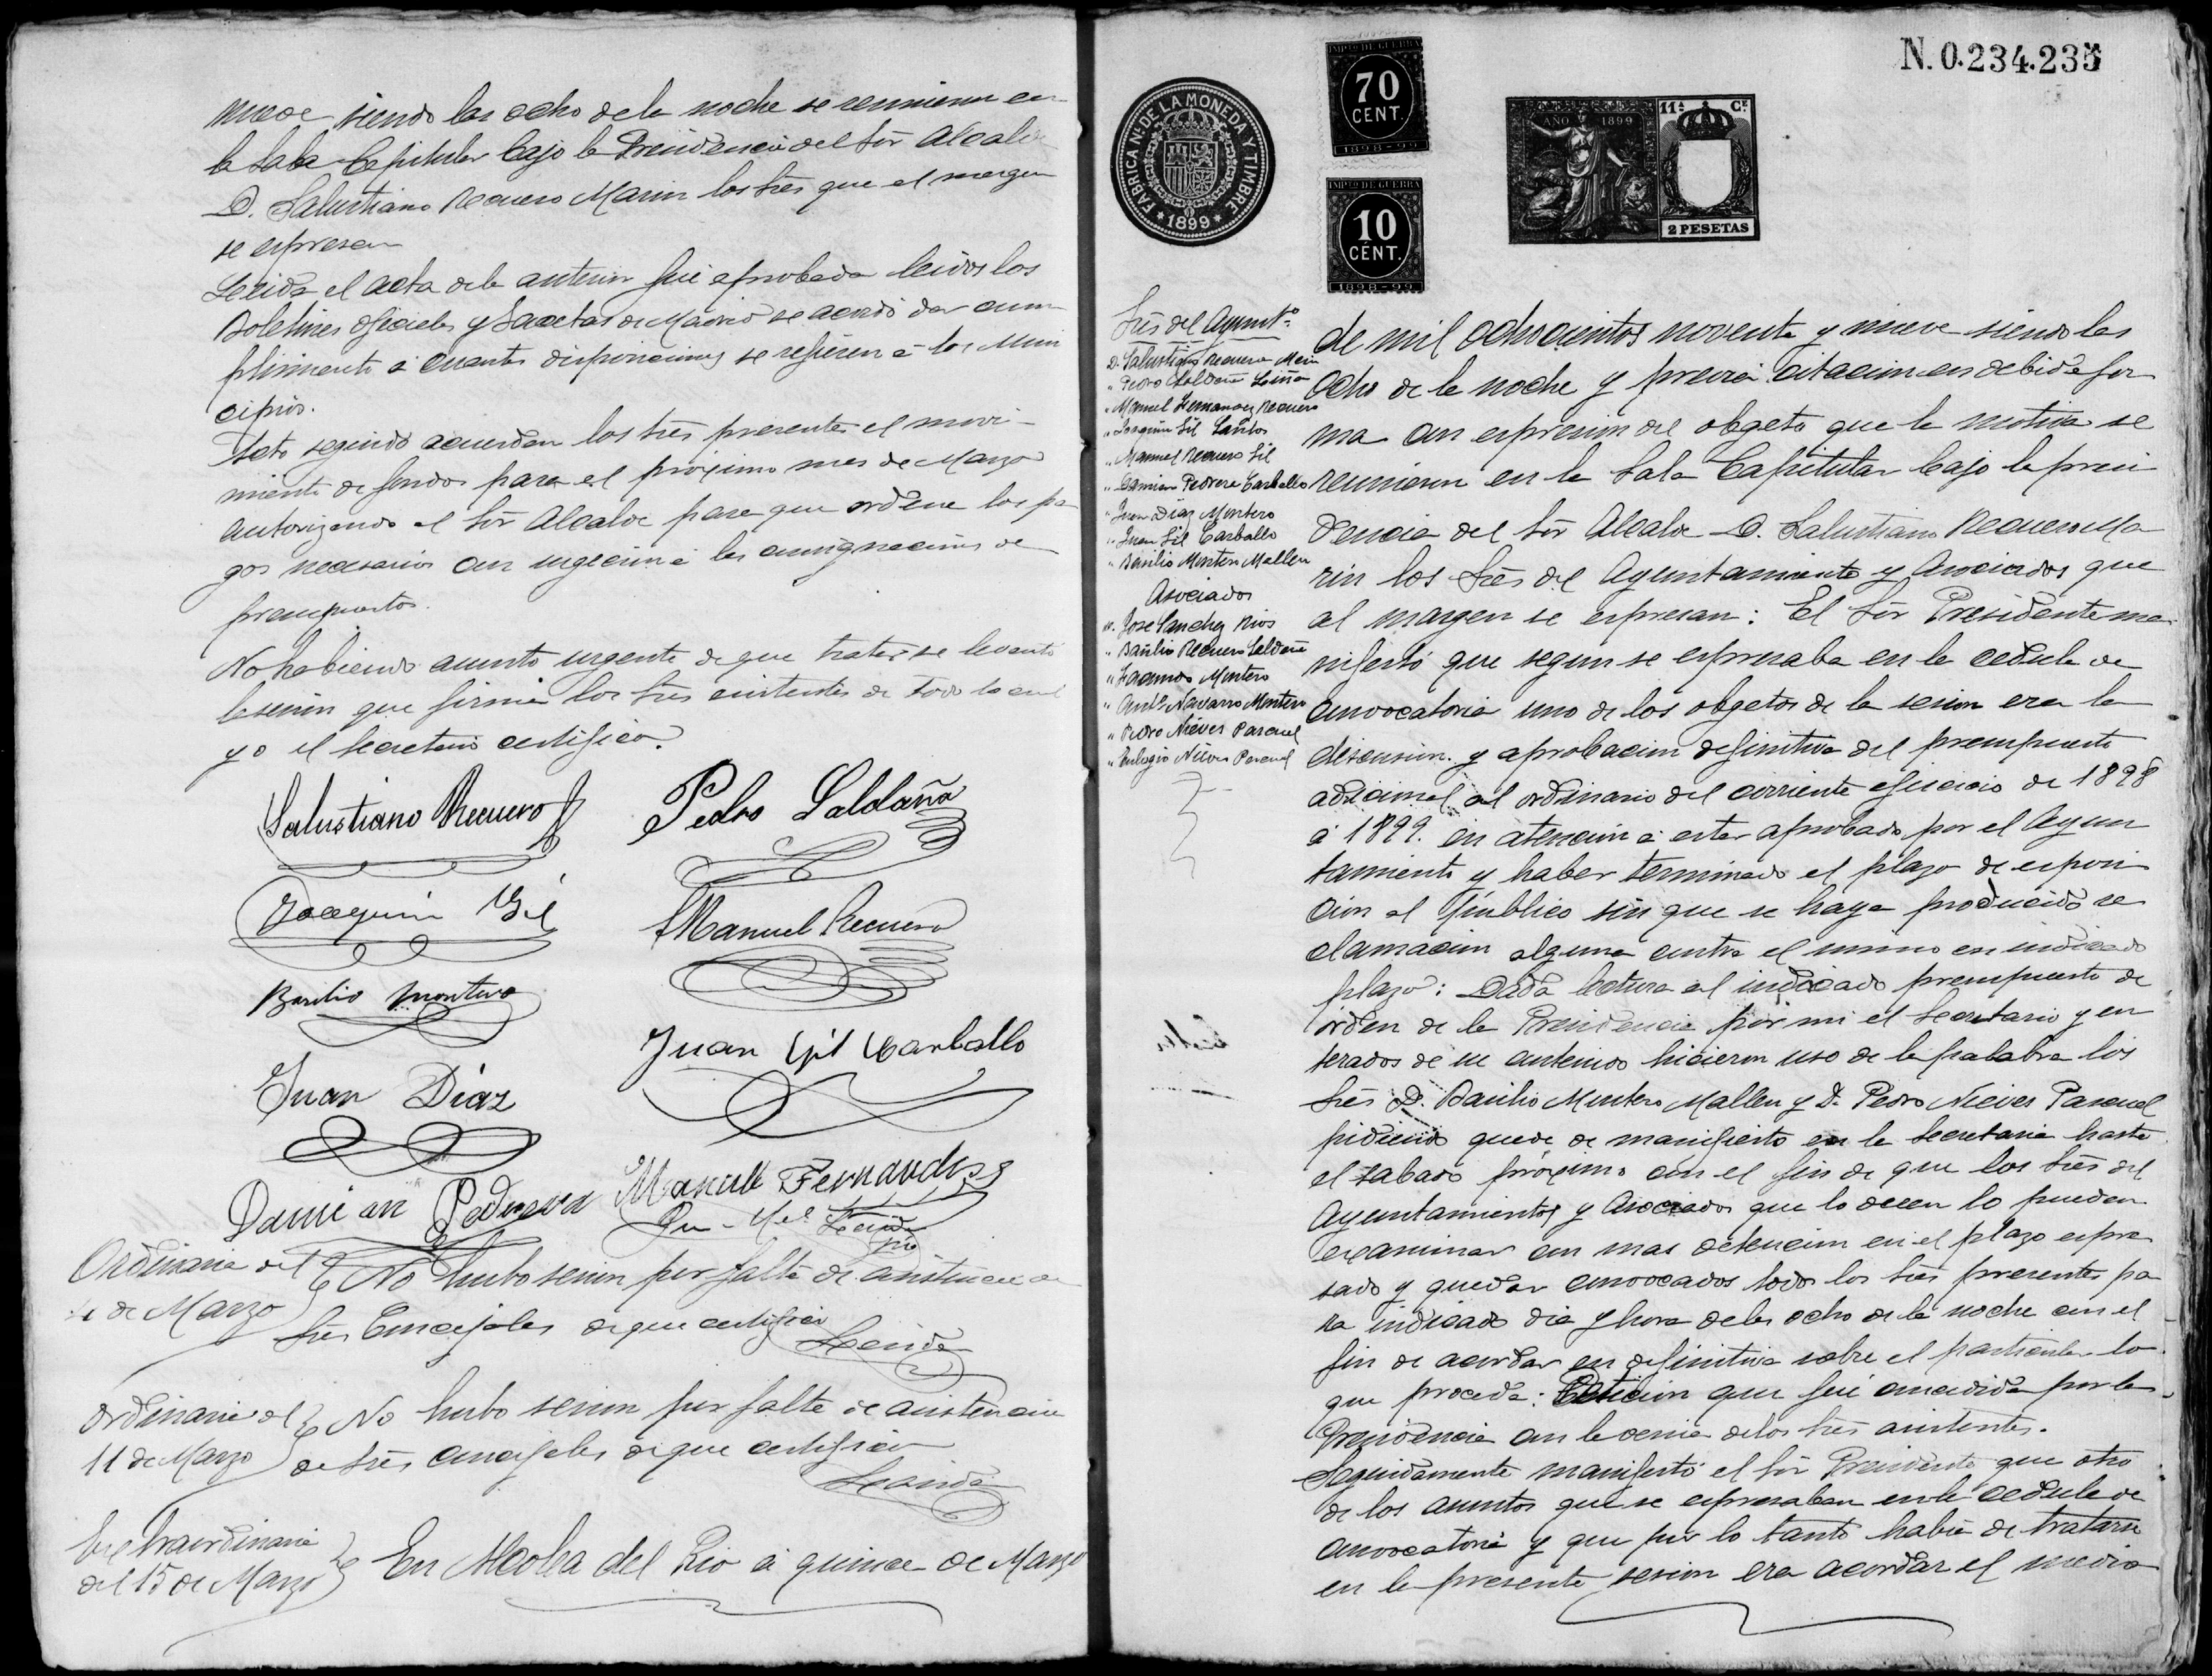 nueve siendo las ocho de la noche se reunieron en
la Sala Capitular bajo la Presidencia del Sór Alcalde
D. Salustiano Recuero Marin los Sres que al margen
se espresan
Leida el acta de la anterior fué aprobada leidos los
Boletines oficiales y Gacetas de Madrid se acordó dar cum
plimiento á cuantas disposiciones se refieren á los Muni
cipios.
Acto seguido acuerdan los Sres presentes el movi-
miento de fondos para el próximo mes de Marzo
autorizando al Sór Alcalde para que ordene los pa
gos necesarios con sugecion á las consignaciones de
presupuestos.
No habiendo asunto urgente de que tratar se levantó
la sesion que firman los Sres asistentes de todo lo cual
yo el Secretario certifico.
Salustiano Recuero
Pedro Saldaña
Joaquin Gil
Manuel Recuero
Basilio Montero
Juan Gil Carballo
Juan Diaz
Manuel Fernandez
Damian Pedrera
Ordinaria del
4 de Marzo
No hubo sesion por falta de asistencia de
Sres Concejales de que certifico
Ordinaria del
11 de Marzo
No hubo sesion por falta de asistencia
de Sres concejales de que certifico
Extraordinaria
del 15 de Marzo
En Alcolea del Rio á quince de Marzo
N. 0.234.235
FABRICA NL. DE LA MONEDA Y TIMBRE
* 1899 *
IMPTO. DE GUERRA
70
CENT.
1898-99
IMPTO. DE GUERRA
10
CÉNT.
1898-99
AÑO 1899
11ª CE
2 PESETAS
Sres del Ayuntº
D. Salustiano Recuero Marin
" Pedro Saldaña Liñan
" Manuel Fernandez Recuero
" Joaquin Gil Santos
" Manuel Recuero Gil
" Damian Pedrera Carballo
" Juan Diaz Montero
" Juan Gil Carballo
" Basilio Montero Mallen
Asociados
D. Jose Sanchez Rios
" Basilio Recuero Saldaña
" Montero
" Antº Navarro Montero
" Pedro Nieves Pascual
" Eulogio Nieves Pascual
de mil ochocientos noventa y nueve siendo las
ocho de la noche y previa citacion en debida for
ma con espresion del obgeto que la motiva se
reunieron en la Sala Capitular bajo la presi
dencia del Sór Alcalde D. Salustiano Recuero Ma
rin los Sres del Ayuntamiento y Asociados que
al margen se espresan: El Sór Presidente ma
nifestó que segun se espresaba en la cedula de
convocatoria uno de los obgetos de la sesion era la
discusion y aprobacion definitiva del presupuesto
adicional al ordinario del corriente egercicio de 1898
á 1899. en atencion á estar aprobado por el Ayun
tamiento y haber terminado el plazo de esposi
cion al público sin que se haya producido re
clamacion alguna contra el mismo en indicado
plazo: Dada lectura al indicado presupuesto de
órden de la Presidencia por mi el Secretario y en
terados de su contenido hicieron uso de la palabra los
Sres D. Basilio Montero Mallen y D. Pedro Nieves Pascual
pidiendo quede de manifiesto en la Secretaria hasta
el sabado próximo con el fin de que los Sres del
Ayuntamiento y Asociados que lo deseen lo puedan
examinar con mas detencion en el plazo espre
sado y quedar convocados todos los Sres presentes pa
ra indicado dia y hora de las ocho de la noche con el
fin de acordar en definitiva sobre el particular lo
que proceda: Peticion que fué concedida por la
Presidencia con la venia de los Sres asistentes.
Seguidamente manifestó el Sór Presidente que otro
de los asuntos que se espresaban en la cedula de
convocatoria y que por lo tanto habia de tratarse
en la presente sesion era acordar el medio